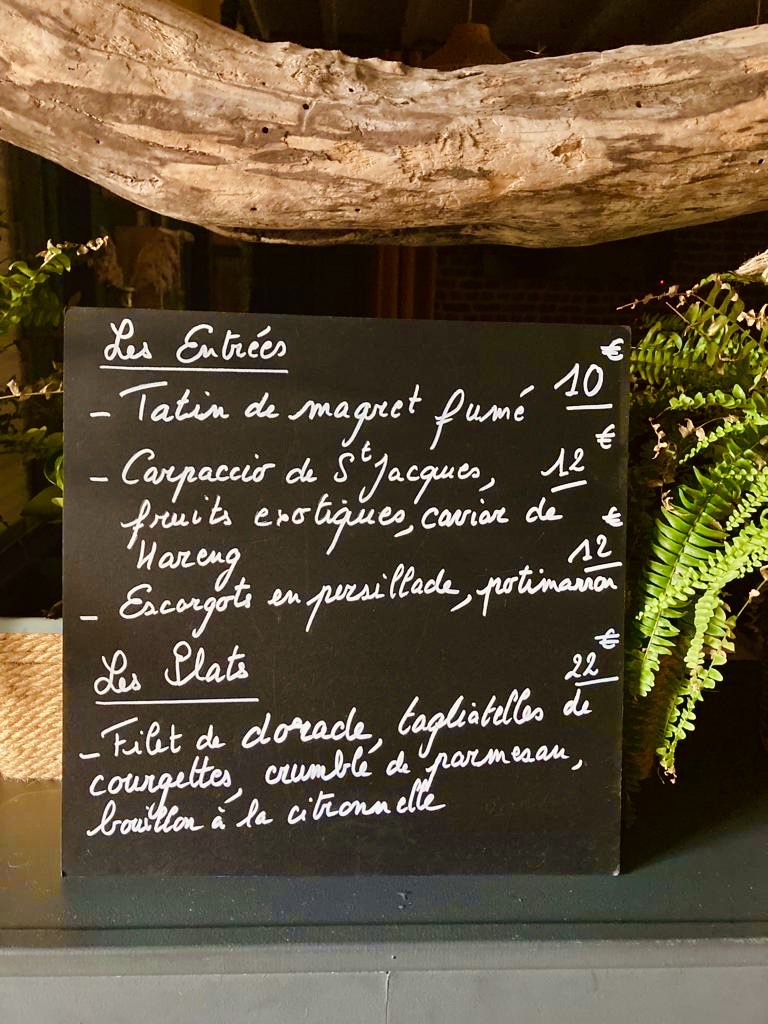 Les Entrées €
- Tatin de magret fumé 10
€
- Carpaccio de St Jacques, 12
fruits exotiques, caviar de €
Hareng 12
- Escargots en persillade, potimarron
Les Plats €
22
- Filet de dorade, tagliatelles de
courgettes, crumble de parmesan,
bouillon à la citronnelle